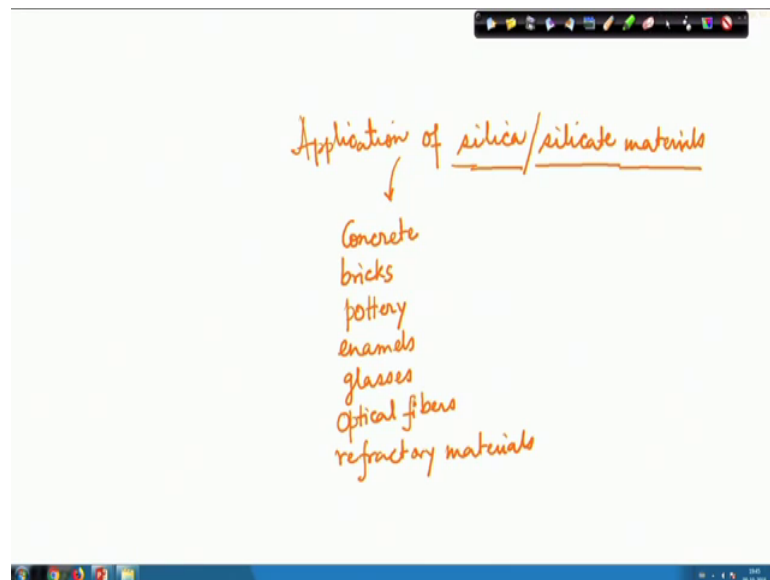 Application of silica/silicate materials
Concrete
bricks
pottery
enamels
glasses
optical fibers
refractory materials